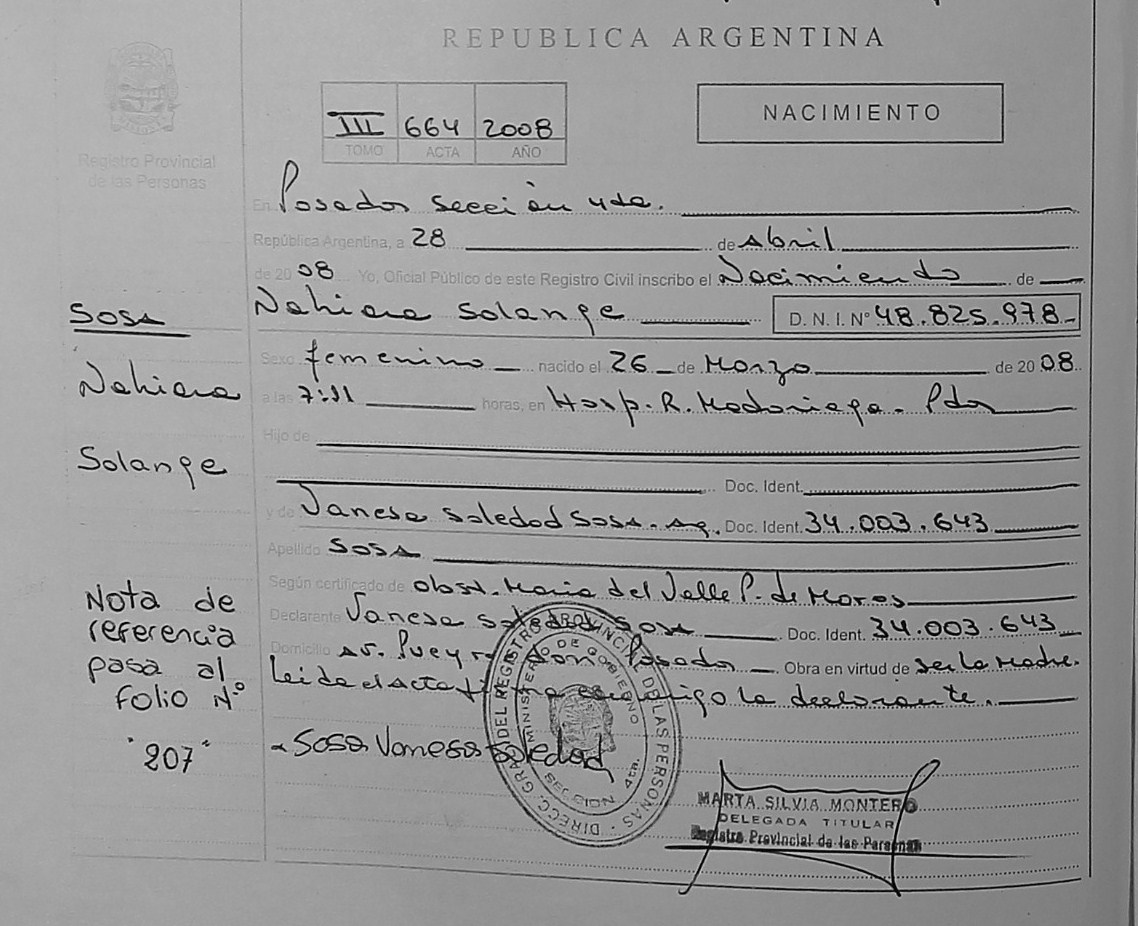 REPUBLICA ARGENTINA
III 664 2008
TOMO ACTA AÑO
NACIMIENTO
Registro Provincial
de las Personas
En Posadas sección 4ta.
República Argentina, a 28 de Abril
de 2008 Yo, Oficial Público de este Registro Civil inscribo el Nacimiento de
Nahiara Solange D. N. I. Nº 48.825.978-
Sexo femenino nacido el 26 de Marzo de 2008
a las 7:11 horas, en Hosp. R. Madariaga - Pdas
Hijo de
Doc. Ident.
y de Vanesa Soledad Sosa. Ag. Doc. Ident. 34.003.643
Apellido SOSA
Según certificado de obst. Maria del Valle P. de Moros
Declarante Vanesa Soledad Sosa Doc. Ident. 34.003.643
Domicilio Av. Pueyrredon Posadas Obra en virtud de ser la Madre.
Leida el acta firma conmigo la declarante.
Sosa Vanesa Soledad
SOSA
Nahiara
Solange
Nota de
referencia
pasa al
folio Nº
"207"
DIRECC. GRAL. DEL REGISTRO PROVINCIAL DE LAS PERSONAS
MINISTERIO DE GOBIERNO
SECCION 4ta.
MARTA SILVIA MONTERO
DELEGADA TITULAR
Registro Provincial de las Personas